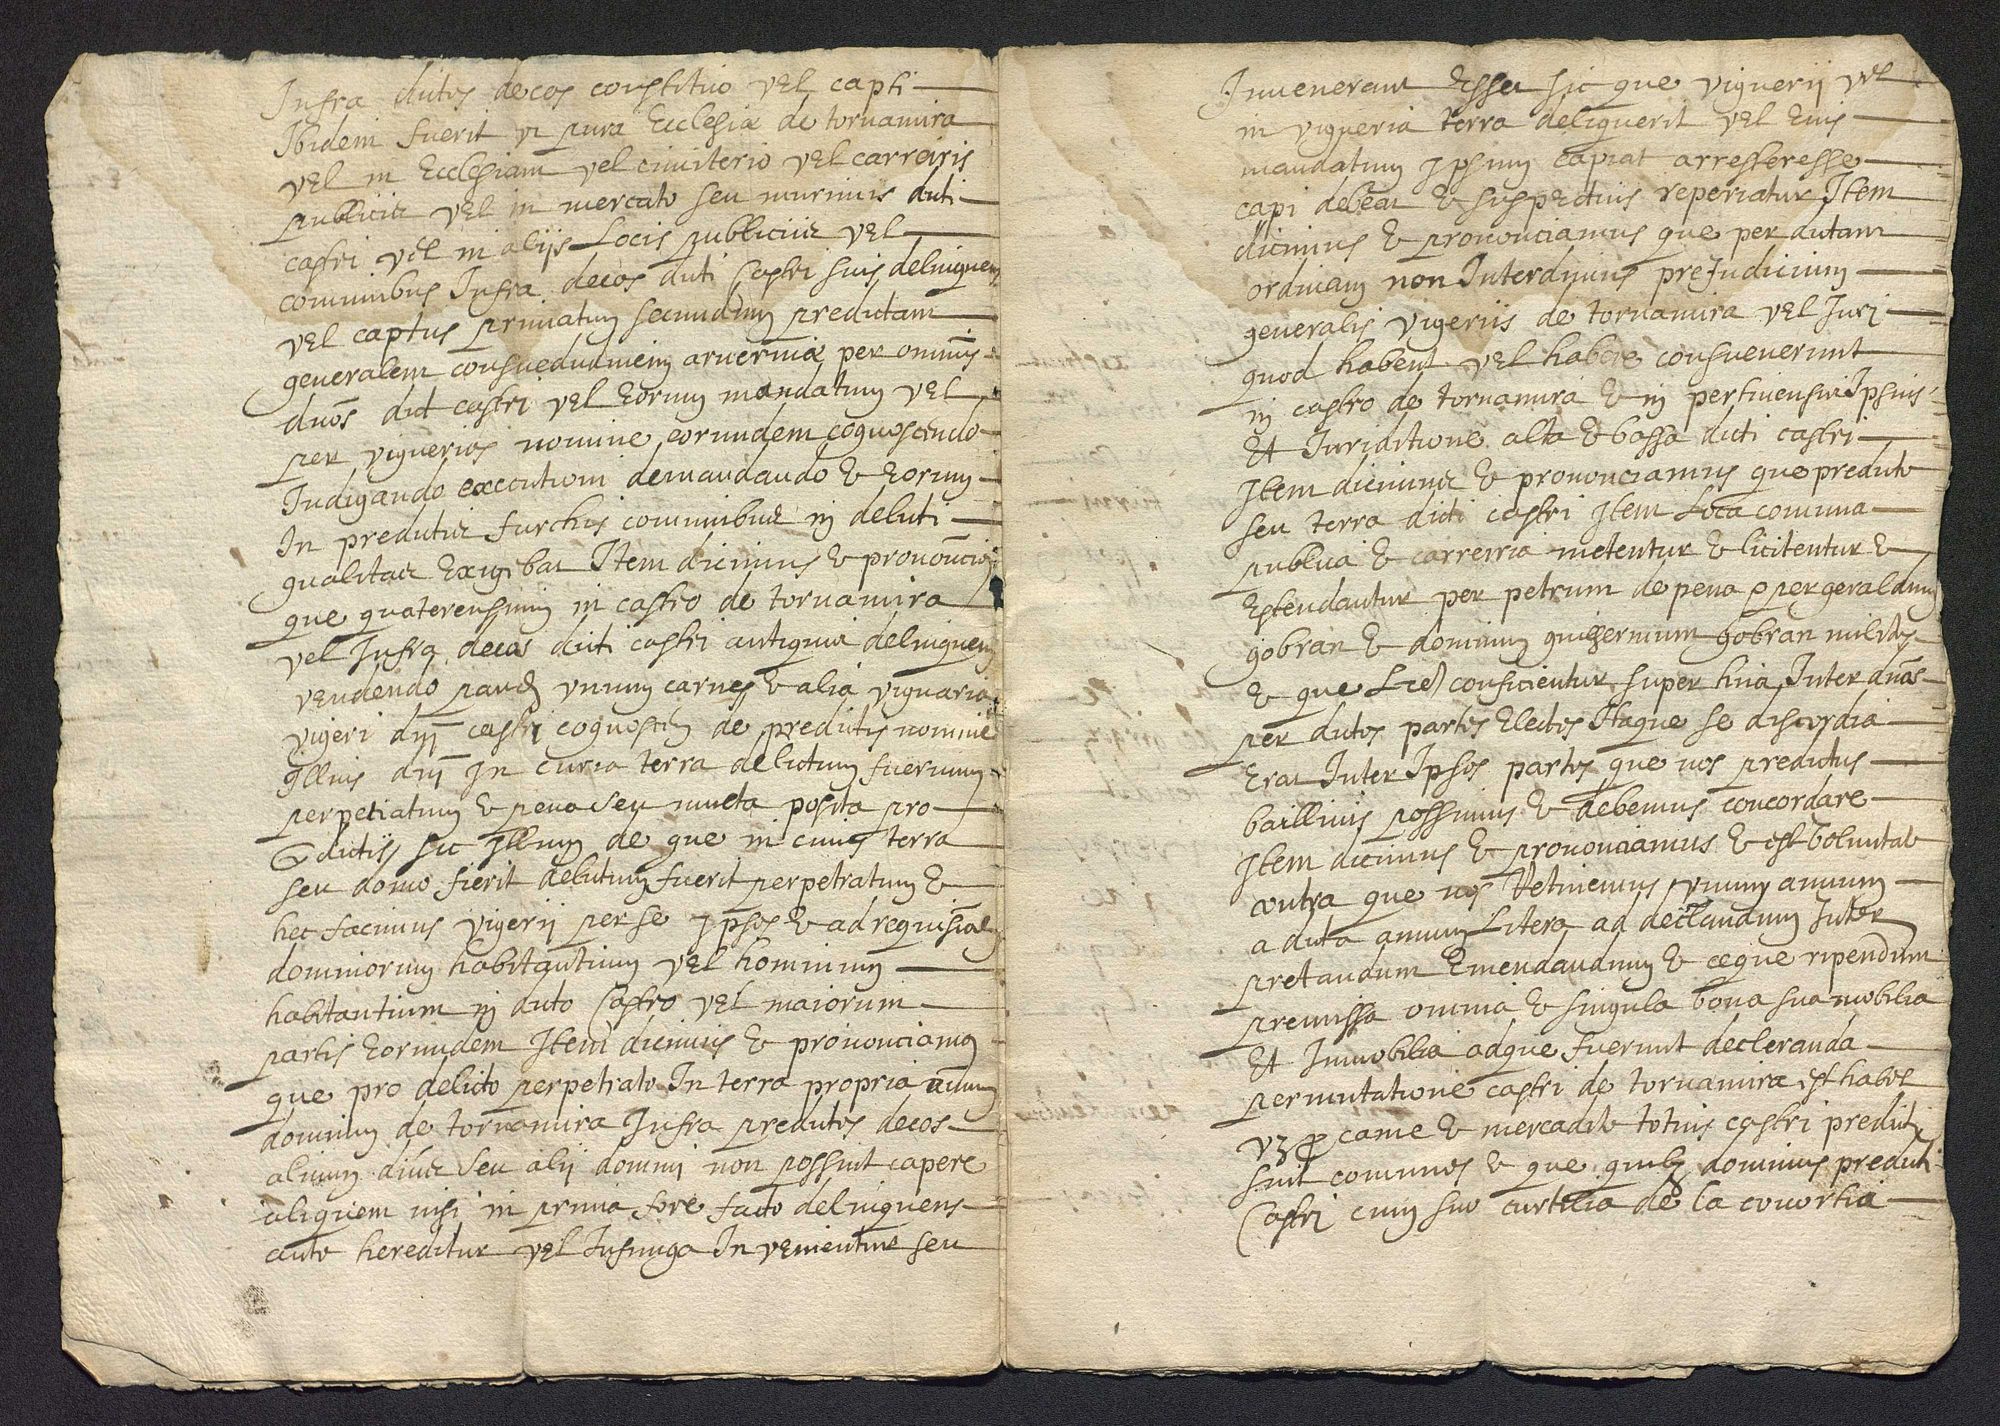 Infra dictos decos constitio vel capti
Ibidem fuerit vi pura Ecclesiæ de tornamira
vel in Ecclesiam vel cimiterio vel carreiris
publiciz vel in mercato seu murinis dicti
castri vel in alijs Locis publiciiz vel
comunibus Infra decos dicti Castri suis delinquens
vel captus privatum secundum predictam
generalem consuedudinem arverniæ per omnis
dnos dict castri vel Eorum mandatum vel
per viguerios nomine eorundem cognoscendo
Iudigando executioni demandando & Eorum
In predictiz furchis comunibuz in delicti
qualitaz Exigibat Item dicimus & prononcio
que quaterensimin in castro de tornamira
vel Infra decos dicti castri antiquiz delinquens
vendendo vinum carnes & alia viguaria
vigeri castri de predictis nomine
Illius In curia terra delictum fuerinum
perpetiatum & pena seu mucta posita pro
dictis sic Illum de que in cuius terra
seu domo fierit delictum fuerit perpetratum &
hec facimus vigerij per se Ipsos & ad requisicae
dominorum habitantium vel hominum
habitantium in dicto Castro vel maiorum
partis Eorundem Item dicimus & prononciamus
que pro delicto perpetrato In terra propria unum
dominum de tornamira Infra predictos decos
alium diuz seu alij domini non possint capere
aliquem nisi in prima fore facto delinquens
aute hereditur vel Infunga Invenientur seu
Invenerant Esse sic que viguerij vel
in vigueria terra deliquerit vel Eius
mandatum Ipsum capiat arresteresse
capi debeat & suspectius reperiatur Item
dicimus & prononciamus que per dictam
ordinam non Interdinius preJudicium
generalis vigeriis de tornamira vel Iuri
quod habent vel habere consuenerunt
in castro de tornamira & in pertinensiis Ipsius
Et Iuriditione alta & bassa dicti castri
Item dicimuz & prononciamus que predicte
seu terra dicti castri Item Loca comuna
publica & carreiria metentur & licitentur &
Estendantur per petrum de pena & per geraldum
gobran & dominum guillermum gobran milites
& que conficientur super hiia Inter dnas
per dictos partes Electos Itaque se discordia
Erat Inter Ipsos partes que nos predictus
baillivis possumus & debemus concordare
Item dicimus & prononciamus & est boluntate
contra que nos Retinemus unum annum
a dicta annum Litera ad declandum Inter
pretandum Emendandum & ceque ripendum
premissa omnia & singula bona sua mobilia
Et Immobilia adque fuerunt decleranda
permutatione castri de tornamira est habet
came & mercadile totius castri predicti
sint comunes & que quilz dominus predicti
Castri cum suo curticia de la conortia